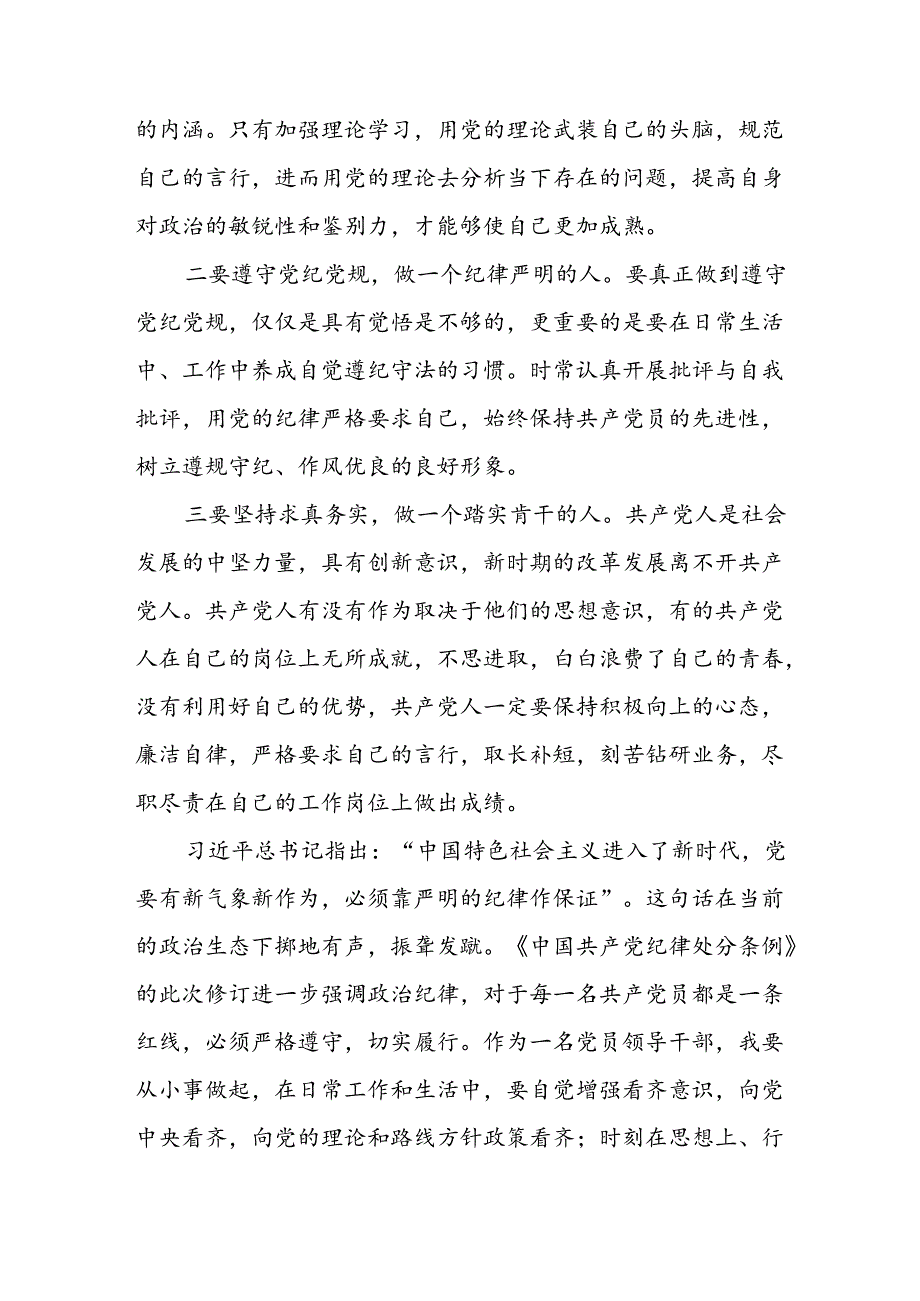 的内涵。只有加强理论学习，用党的理论武装自己的头脑，规范
自己的言行，进而用党的理论去分析当下存在的问题，提高自身
对政治的敏锐性和鉴别力，才能够使自己更加成熟。
二要遵守党纪党规，做一个纪律严明的人。要真正做到遵守
党纪党规，仅仅是具有觉悟是不够的，更重要的是要在日常生活
中、工作中养成自觉遵纪守法的习惯。时常认真开展批评与自我
批评，用党的纪律严格要求自己，始终保持共产党员的先进性，
树立遵规守纪、作风优良的良好形象。
三要坚持求真务实，做一个踏实肯干的人。共产党人是社会
发展的中坚力量，具有创新意识，新时期的改革发展离不开共产
党人。共产党人有没有作为取决于他们的思想意识，有的共产党
人在自己的岗位上无所成就，不思进取，白白浪费了自己的青春，
没有利用好自己的优势，共产党人一定要保持积极向上的心态，
廉洁自律，严格要求自己的言行，取长补短，刻苦钻研业务，尽
职尽责在自己的工作岗位上做出成绩。
习近平总书记指出：“中国特色社会主义进入了新时代，党
要有新气象新作为，必须靠严明的纪律作保证”。这句话在当前
的政治生态下掷地有声，振聋发蹴。《中国共产党纪律处分条例》
的此次修订进一步强调政治纪律，对于每一名共产党员都是一条
红线，必须严格遵守，切实履行。作为一名党员领导干部，我要
从小事做起，在日常工作和生活中，要自觉增强看齐意识，向党
中央看齐，向党的理论和路线方针政策看齐；时刻在思想上、行